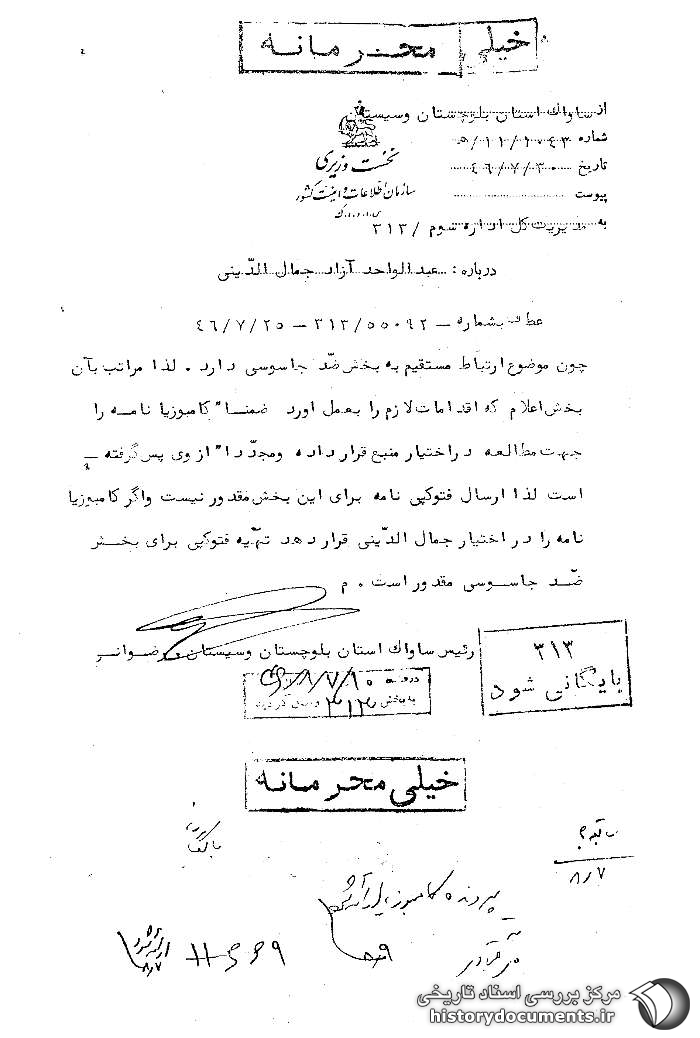 خیلی محرمانه
از ساواك استان بلوچستان وسیستان
شماره ۱۱/۱۰۴۳/ه
نخست وزیری
تاریخ ۴۶/۷/۳۰
سازمان اطلاعات و امنیت کشور
پیوست
س.ا.و.ا.ك
به مدیریت کل اداره سوم /۳۱۳
درباره : عبدالواحد آزاد جمال الدّینی
عطف بشماره – ۳۱۳/۵۵۰۹۲ – ۴۶/۷/۲۵
چون موضوع ارتباط مستقیم به بخش ضدّ جاسوسی دارد . لذا مراتب بآن
بخش اعلام که اقدامات لازم را بعمل اورد ضمنا" کامبوزیا نامه را
جهت مطالعه در اختیار منبع قرار داده ومجدّدا" از وی پس گرفته
است لذا ارسال فتوکپی نامه برای این بخش مقدور نیست واگر کامبوزیا
نامه را در اختیار جمال الدّینی قرار دهد تهّیه فتوکپی برای بخش
ضدّ جاسوسی مقدور است . م
رئیس ساواك استان بلوچستان وسیستان . رضوانی
۳۱۳
بایگانی شود
به بخش ۳۱۳
خیلی محرمانه
سابقه ؟
۸/۷
پرونده کامبوزیا
۸/۷
مرکز بررسی اسناد تاریخی
historydocuments.ir